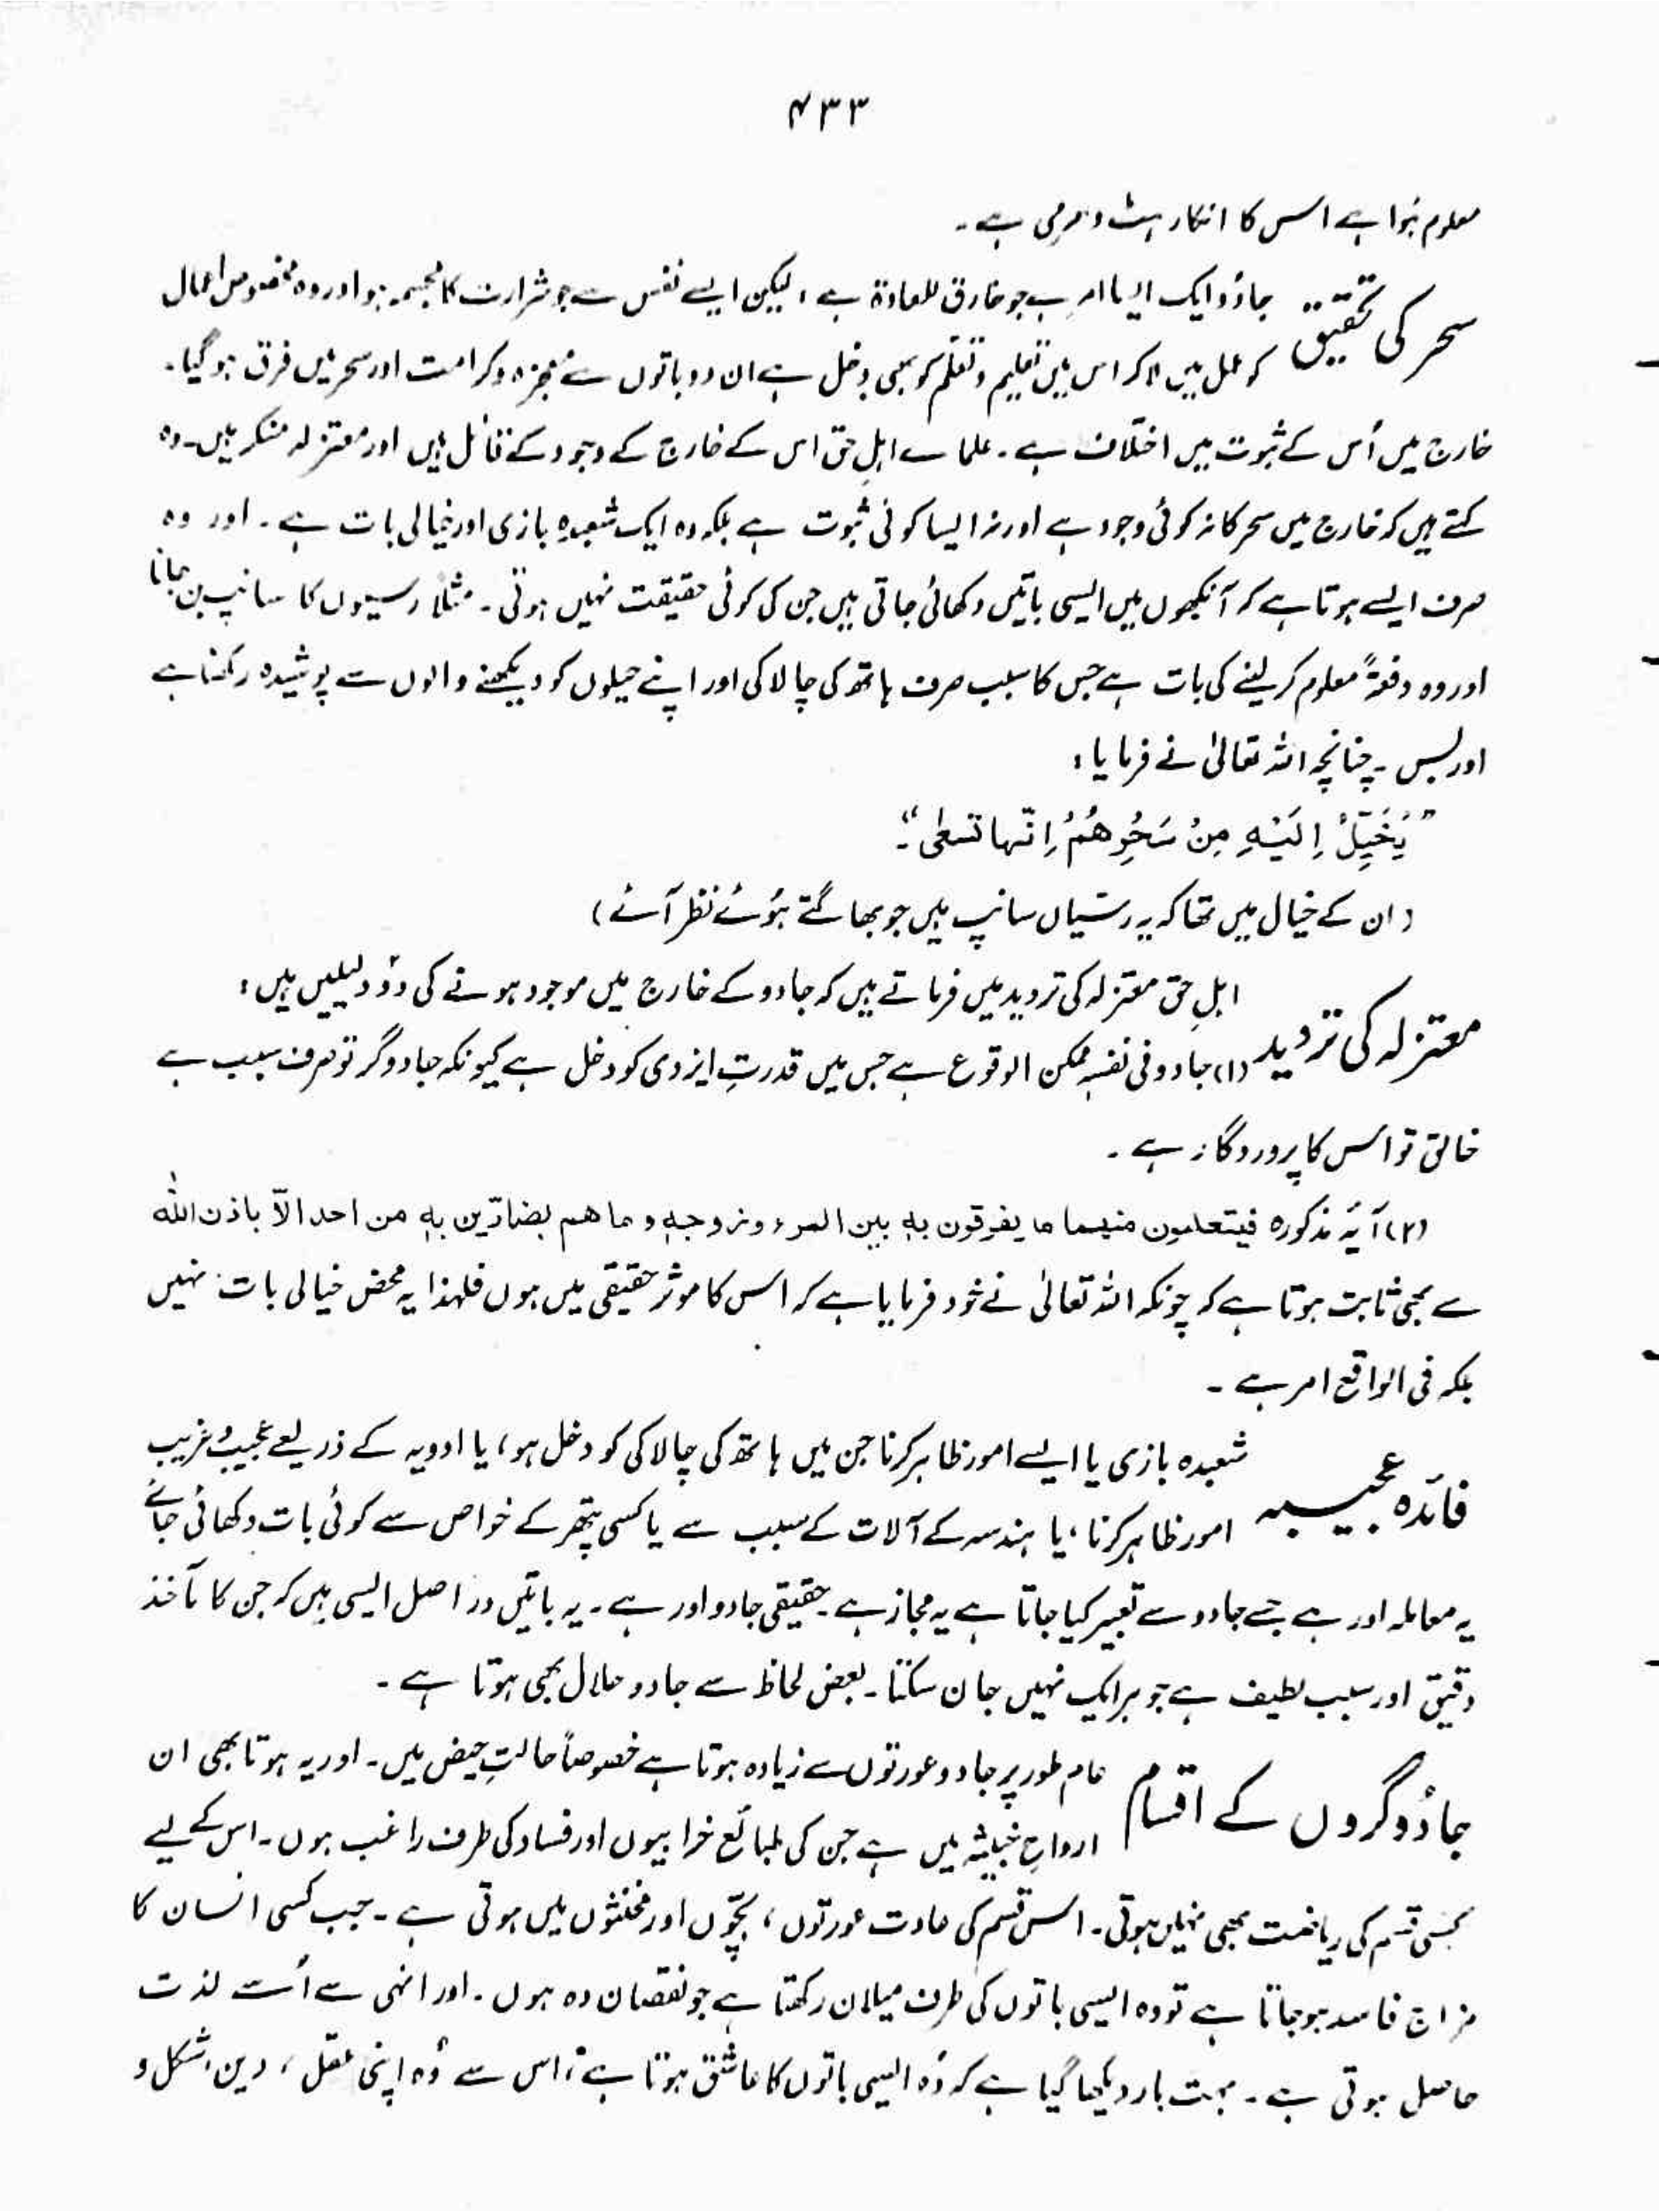 ۴۳۳
معلوم ہُوا ہے اس کا انکار ہٹ دھرمی ہے۔
سحر کی تحقیق
جادُو ایک ایسا امر ہے جو خارق للعادۃ ہے، لیکن ایسے نفس سے جو شرارت کا مجسمہ ہو اور وہ مخصوص اعمال
کو عمل میں لا کر اس میں تعلیم و تعلّم کو بھی دخل ہے ان دو باتوں سے معجزہ و کرامت اور سحر میں فرق ہو گیا۔
خارج میں اُس کے ثبوت میں اختلاف ہے۔ علمائے اہلِ حق اس کے خارج کے وجود کے قائل ہیں اور معتزلہ منکر ہیں۔ وہ
کہتے ہیں کہ خارج میں سحر کا نہ کوئی وجود ہے اور نہ ایسا کوئی ثبوت ہے بلکہ وہ ایک شعبدہ بازی اور خیالی بات ہے۔ اور وہ
صرف ایسے ہوتا ہے کہ آنکھوں میں ایسی باتیں دکھائی جاتی ہیں جن کی کوئی حقیقت نہیں ہوتی۔ مثلاً رسیوں کا سانپ بن جانا
اور وہ دفعۃً معلوم کر لینے کی بات ہے جس کا سبب صرف ہاتھ کی چالاکی اور اپنے حیلوں کو دیکھنے والوں سے پوشیدہ رکھنا ہے
اور بس۔ چنانچہ اللہ تعالیٰ نے فرمایا:
”یُخَیَّلُ اِلَیْہِ مِنْ سَحْرِھِمْ اِنّھا تسعٰی“۔
(ان کے خیال میں تھا کہ یہ رسّیاں سانپ ہیں جو بھاگتے ہُوئے نظر آئے)
معتزلہ کی تردید
اہلِ حق معتزلہ کی تردید میں فرماتے ہیں کہ جادو کے خارج میں موجود ہونے کی دو دلیلیں ہیں:
(۱) جادو فی نفسہٖ ممکن الوقوع ہے جس میں قدرتِ ایزدی کو دخل ہے کیونکہ جادوگر تو صرف سبب ہے
خالق تو اس کا پروردگار ہے۔
(۲) آیۂ مذکورہ فیتعلمون منہما ما یفرقون بہٖ بین المرء و زوجہٖ و ما ھم بضارّین بہٖ من احد الّا باذن اللّٰہ
سے بھی ثابت ہوتا ہے کہ چونکہ اللہ تعالیٰ نے خود فرمایا ہے کہ اس کا موثر حقیقی میں ہوں فلہذا یہ محض خیالی بات نہیں
بلکہ فی الواقع امر ہے۔
فائدہ عجیبہ
شعبدہ بازی یا ایسے امور ظاہر کرنا جن میں ہاتھ کی چالاکی کو دخل ہو، یا ادویہ کے ذریعے عجیب و غریب
امور ظاہر کرنا، یا ہندسہ کے آلات کے سبب سے یا کسی پتھر کے خواص سے کوئی بات دکھائی جائے
یہ معاملہ اور ہے جسے جادو سے تعبیر کیا جاتا ہے یہ مجاز ہے۔ حقیقی جادو اور ہے۔ یہ باتیں در اصل ایسی ہیں کہ جن کا مآخذ
دقیق اور سبب لطیف ہے جو ہر ایک نہیں جان سکتا۔ بعض لحاظ سے جادو حلال بھی ہوتا ہے۔
جادُوگروں کے اقسام
عام طور پر جادو عورتوں سے زیادہ ہوتا ہے خصوصاً حالتِ حیض میں۔ اور یہ ہوتا بھی ان
ارواحِ خبیثہ میں ہے جن کی طبائع خرابیوں اور فساد کی طرف راغب ہوں۔ اس کے لیے
کسی قسم کی ریاضت بھی نہیں ہوتی۔ اس قسم کی عادت عورتوں، بچّوں اور مخنثوں میں ہوتی ہے۔ جب کسی انسان کا
مزاج فاسد ہو جاتا ہے تو وہ ایسی باتوں کی طرف میلان رکھتا ہے جو نقصان دہ ہوں۔ اور انہی سے اُسے لذت
حاصل ہوتی ہے۔ بہت بار دیکھا گیا ہے کہ وُہ ایسی باتوں کا عاشق ہوتا ہے، اس سے وُہ اپنی عقل، دین، شکل و